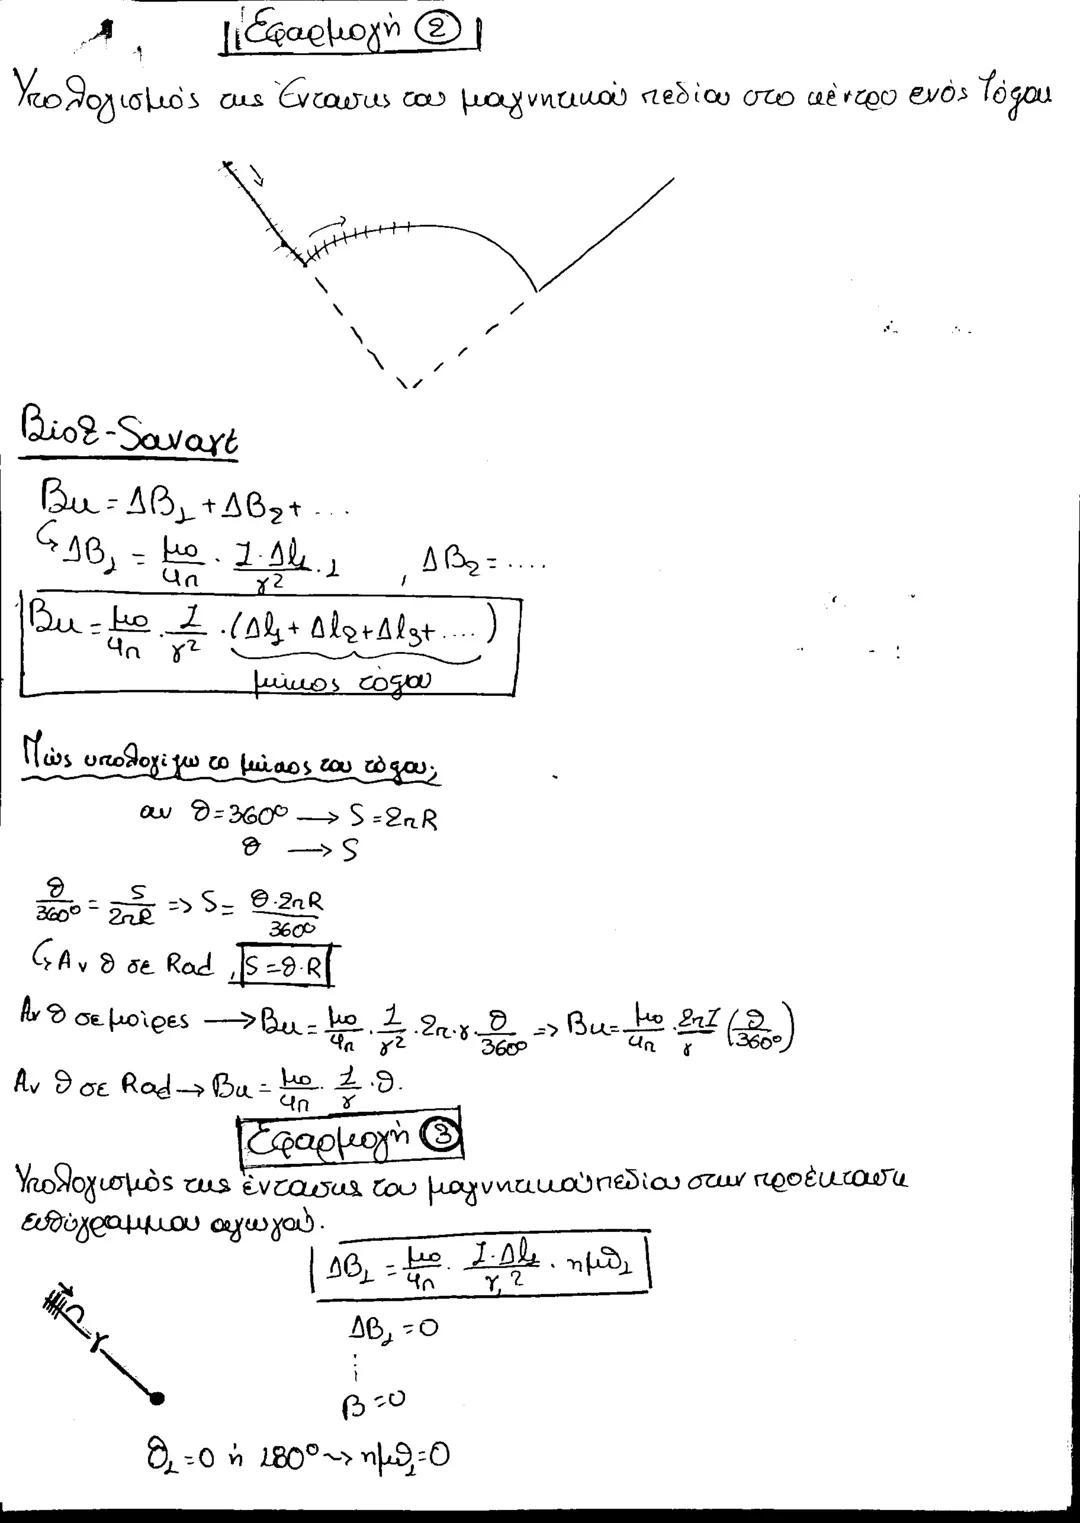 Εφαρμογή ②
Υπολογισμός της Έντασης του μαγνητικού πεδίου στο κέντρο ενός τόξου
Biot-Savart
Bκ = ΔB₁ + ΔB₂ + ...
↳ ΔB₁ = μο/4π · I·Δl₁/r² · 1 , ΔB₂ = ....
Bκ = μο/4π · I/r² · (Δl₁ + Δl₂ + Δl₃ + ....)
μήκος τόξου
Πώς υπολογίζω το μήκος του τόξου;
αν θ=360° → S = 2πR
θ → S
θ/360° = S/2πR => S = θ·2πR/360°
↳ Αν θ σε Rad, S = θ·R
Αν θ σε μοίρες → Bκ = μο/4π · I/r² · 2π·r · θ/360° => Bκ = μο/4π · 2πI/r (θ/360°)
Αν θ σε Rad → Bκ = μο/4π · I/r · θ.
Εφαρμογή ③
Υπολογισμός της έντασης του μαγνητικού πεδίου στην προέκταση
ευθύγραμμου αγωγού.
ΔB₁ = μο/4π · I·Δl₁/r₁² · ημθ₁
r
ΔB₁ = 0
⋮
B = 0
θ₁ = 0 ή 180° ⇝ ημθ₁ = 0